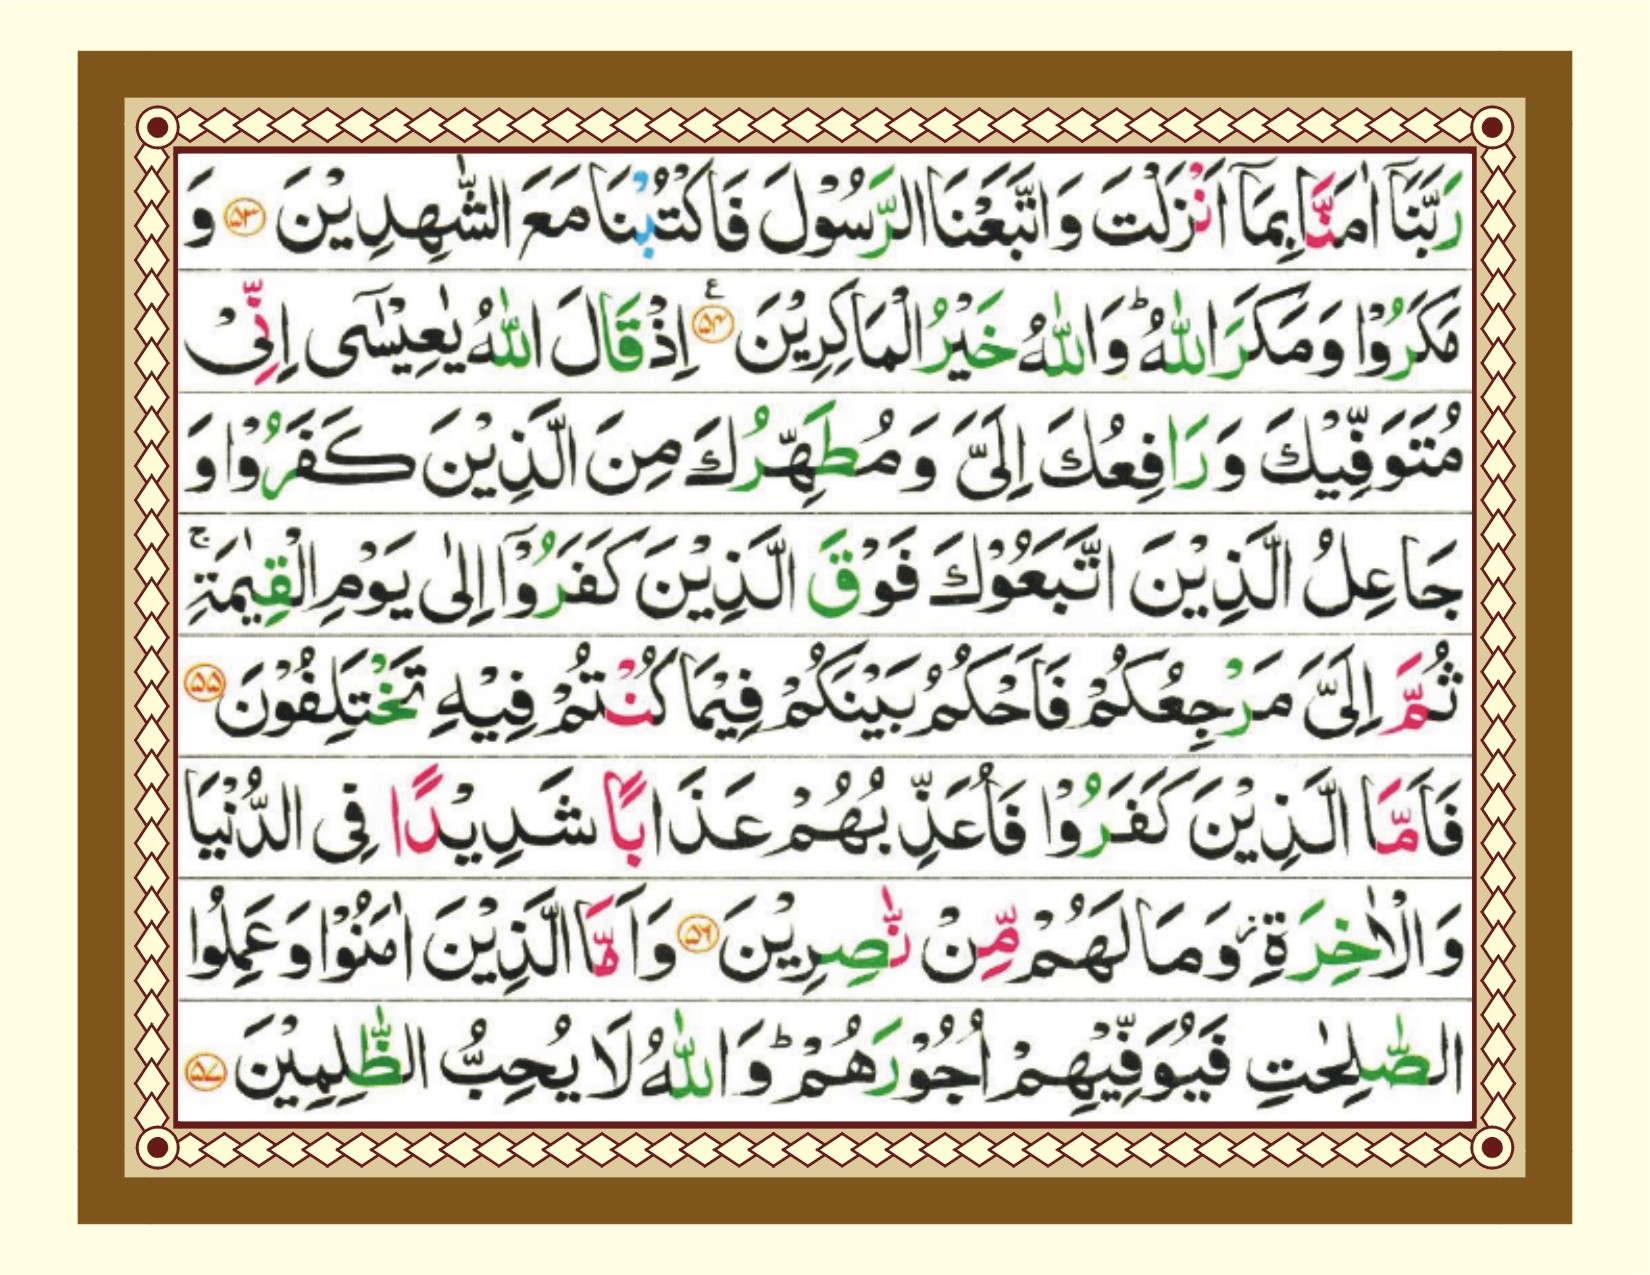 رَبَّنَآ اٰمَنَّا بِمَآ اَنْزَلْتَ وَاتَّبَعْنَا الرَّسُوْلَ فَاكْتُبْنَا مَعَ الشّٰهِدِيْنَ ۵۳ وَ
مَكَرُوْا وَمَكَرَ اللّٰهُ ؕ وَاللّٰهُ خَيْرُ الْمَاكِرِيْنَ ۵۴ ع اِذْ قَالَ اللّٰهُ يٰعِيْسٰٓى اِنِّىْ
مُتَوَفِّيْكَ وَرَافِعُكَ اِلَىَّ وَمُطَهِّرُكَ مِنَ الَّذِيْنَ كَفَرُوْا وَ
جَاعِلُ الَّذِيْنَ اتَّبَعُوْكَ فَوْقَ الَّذِيْنَ كَفَرُوْٓا اِلٰى يَوْمِ الْقِيٰمَةِ ۚ
ثُمَّ اِلَىَّ مَرْجِعُكُمْ فَاَحْكُمُ بَيْنَكُمْ فِيْمَا كُنْتُمْ فِيْهِ تَخْتَلِفُوْنَ ۵۵
فَاَمَّا الَّذِيْنَ كَفَرُوْا فَاُعَذِّبُهُمْ عَذَابًا شَدِيْدًا فِى الدُّنْيَا
وَالْاٰخِرَةِ ز وَمَا لَهُمْ مِّنْ نّٰصِرِيْنَ ۵۶ وَاَمَّا الَّذِيْنَ اٰمَنُوْا وَعَمِلُوا
الصّٰلِحٰتِ فَيُوَفِّيْهِمْ اُجُوْرَهُمْ ؕ وَاللّٰهُ لَا يُحِبُّ الظّٰلِمِيْنَ ۵۷